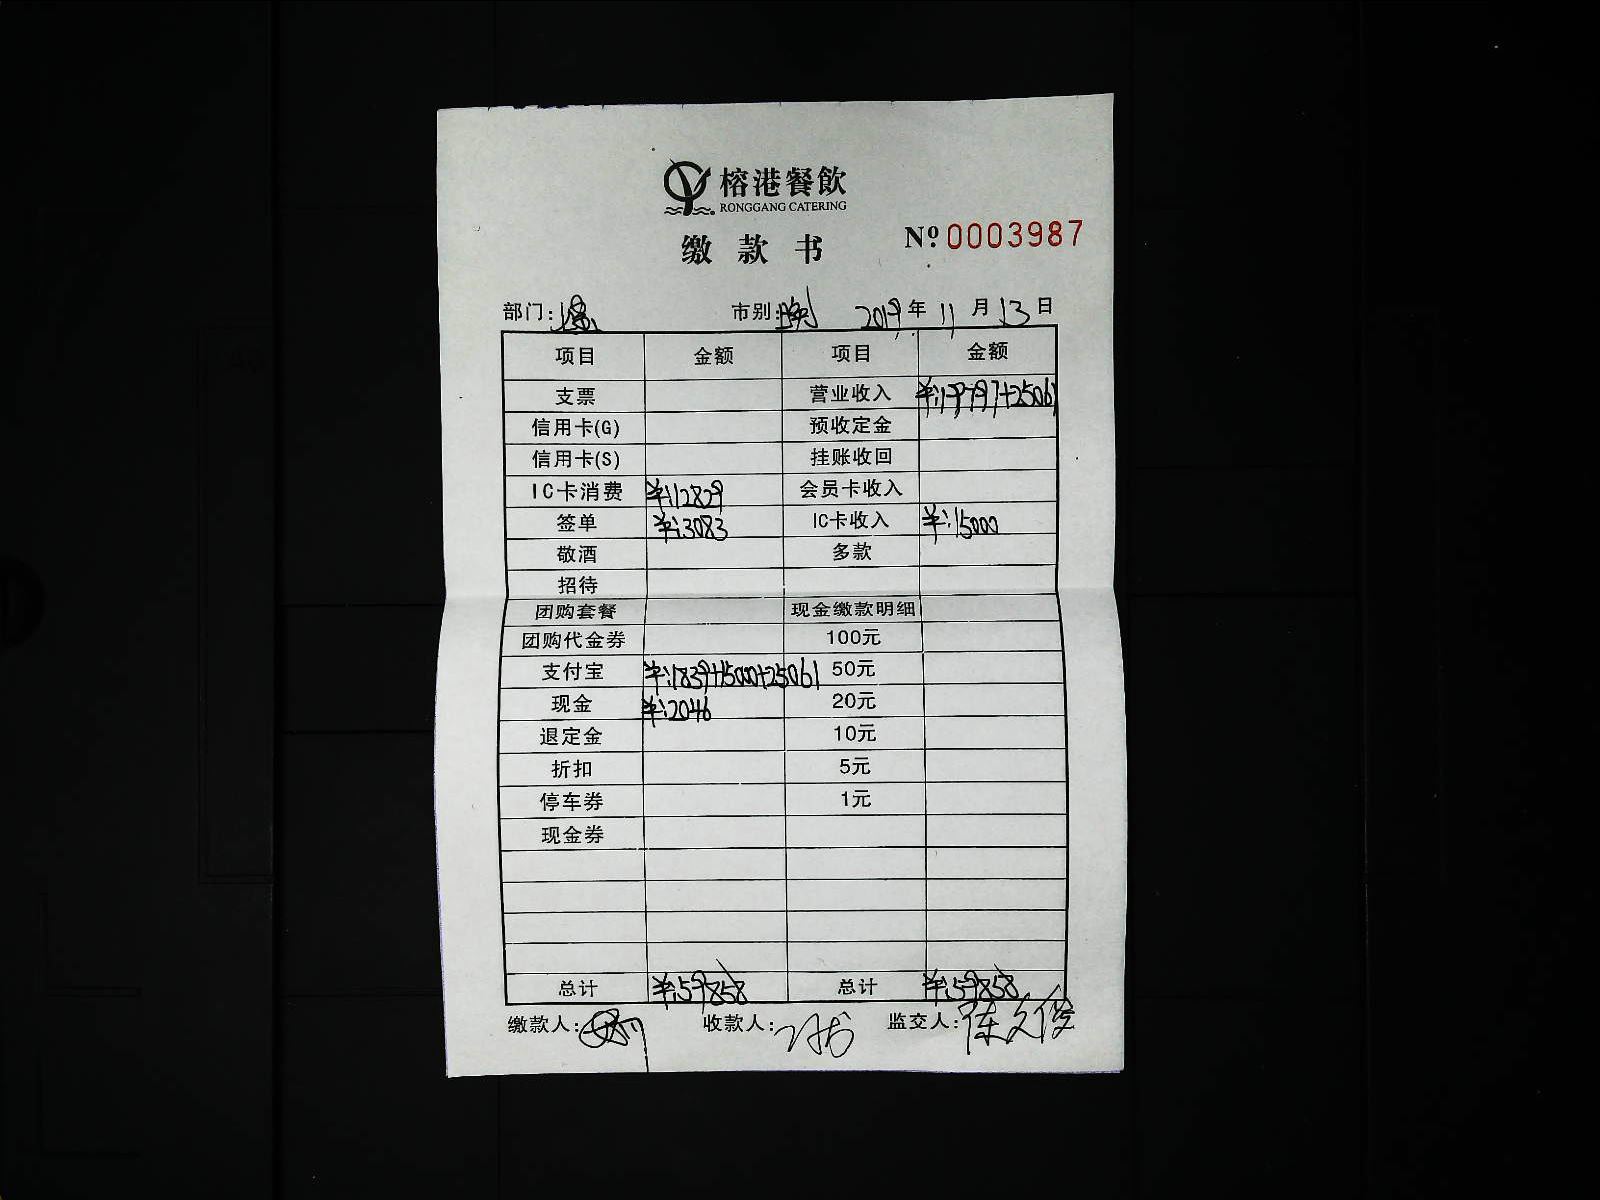 榕港餐飲
RONGGANG CATERING
缴款书
Nº 0003987
部门: 市别: 2019年11月13日
项目 金额 项目 金额
支票 营业收入 ¥:19797+25061
信用卡(G) 预收定金
信用卡(S) 挂账收回
IC卡消费 ¥:12829 会员卡收入
签单 ¥:3083 IC卡收入 ¥:15000
敬酒 多款
招待
团购套餐 现金缴款明细
团购代金券 100元
支付宝 ¥:1839+15000+25061 50元
现金 ¥:2046 20元
退定金 10元
折扣 5元
停车券 1元
现金券
总计 ¥:59858 总计 ¥:59858
缴款人: 收款人: 监交人:陈文俊